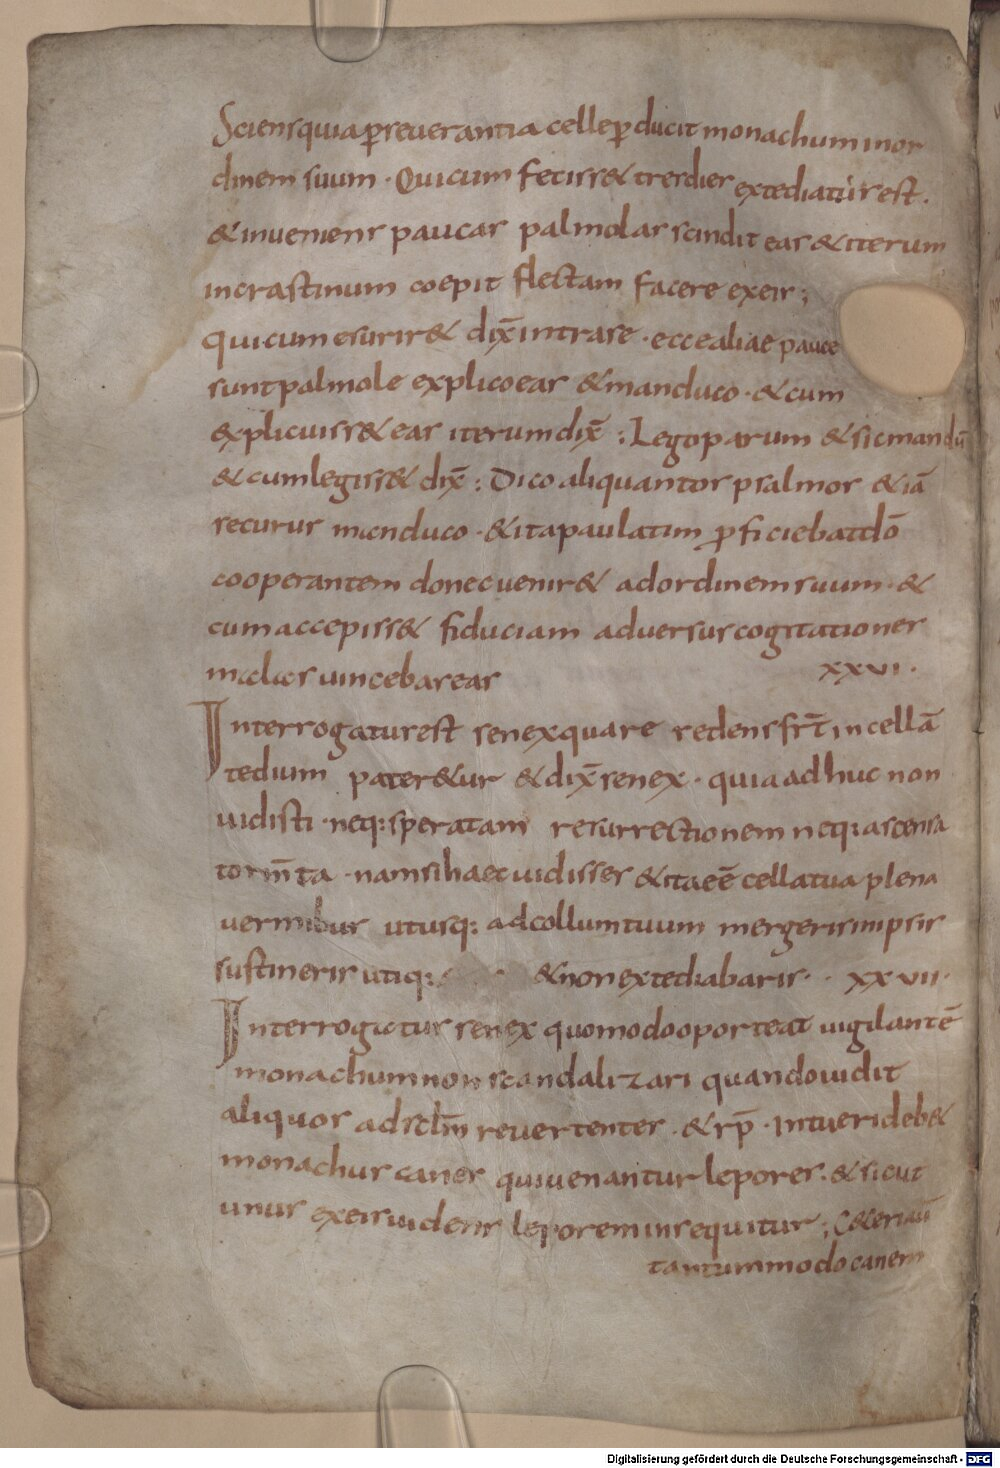 Sciens quia p̄ reverantia celle p̄ducit monachum in or
dinem suum · Qui cum feciss& tres dies extediatus est ·
& inveniens paucas palmolas scindit eas & iterum
in crastinum coepit flectam facere ex eis ;
qui cum esurir& dix̄ intra se · ecce aliae pauce
sunt palmole explico eas & manduco · & cum
explicuiss& eas iterum dix̄ : Lego parum & sic mandū
& cum legiss& dix̄ : Dico aliquantos psalmos & iā
securus manduco · & ita paulatim ꝓficiebat dō
cooperantem donec venir& ad ordinem suum · &
cum accepiss& fiduciam adversus cogitationes
malas vincebat eas
XXVI ·
Interrogatus est senex quare redens fr̄t in cellā
tedium pater&ur & dix̄ senex · quia adhuc non
uidisti · neq: speratam resurrectionem neq: ascensa
torm̄ta · nam si haec uidisses & ita eē cella tua plena
vermibus ut usq: ad collum tuum mergeris in ipsis
sustineris utiq: & non extediabaris · · XXVII ·
Interrogatus senex quomodo oporteat uigilantē
monachum non scandalizari quando uidit
aliquos ad sc̄lm̄ revertentes · & rp̄ · Intueri deb&
monachus canes qui uenantur lepores · & sicut
unus ex eis uidens leporem insequitur ; C&eri aū
tantummodo canem
Digitalisierung gefördert durch die Deutsche Forschungsgemeinschaft - DFG